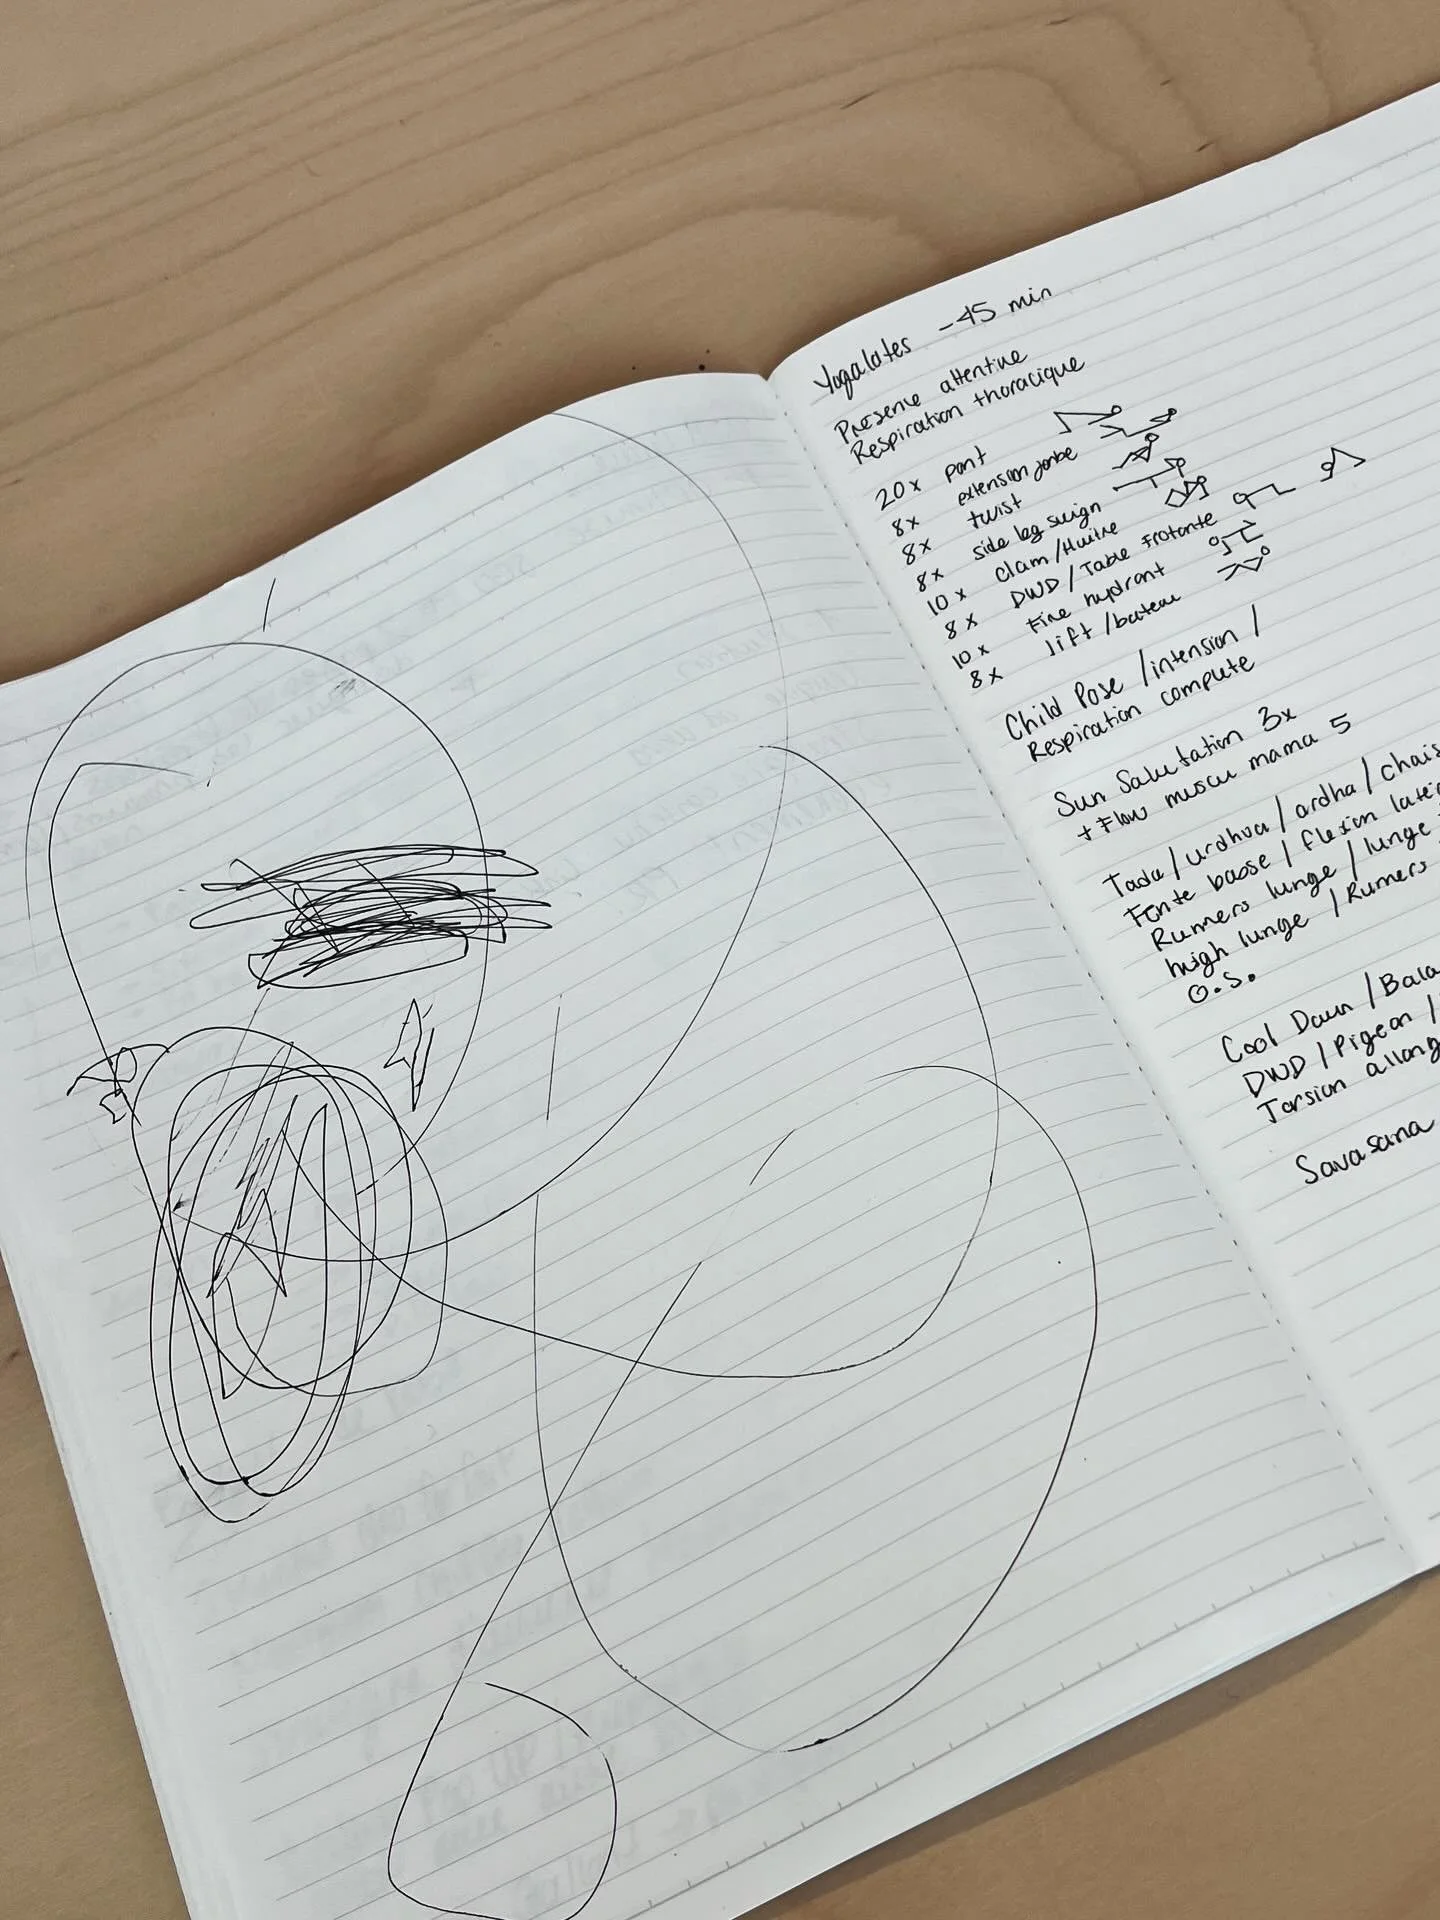 Yogalates - 45 min
Présence attentive
Respiration thoracique
20x pont
8x extension jambe
8x twist
8x side leg swign
10x clam/Huitre
8x DWD/Table Flotante
10x Fire hydrant
8x lift/bateau
Child Pose /intension/
Respiration complete
Sun Salutation 3x
+ Flow muscu mama 5
Tada/urdhva/ardha/chais
Fente basse / flexion laté
Runners lunge / lunge
high lunge / Runners
O.S.
Cool Down / Bala
DWD / Pigeon /
Torsion allong
Savasana